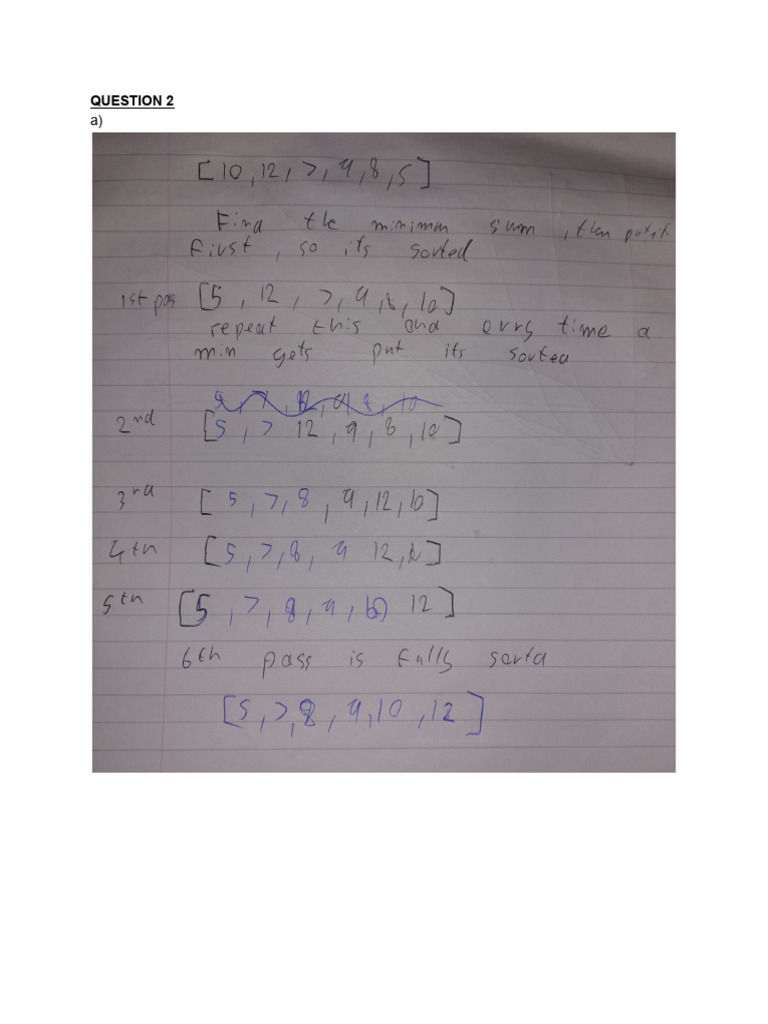 QUESTION 2
a)
[10, 12, 7, 9, 8, 5]
Find the minimum sum, then put it
first, so its sorted
1st pas [5, 12, 7, 9, 8, 10]
repeat this and evry time a
min gets put its sorted
5, 7, 12, 9, 8, 10
2nd [5, 7 12, 9, 8, 10]
3rd [5, 7, 8, 9, 12, 10]
4th [5, 7, 8, 9 12, 10]
5th [5, 7, 8, 9, 10 12]
6th pass is fully sorted
[5, 7, 8, 9, 10, 12]